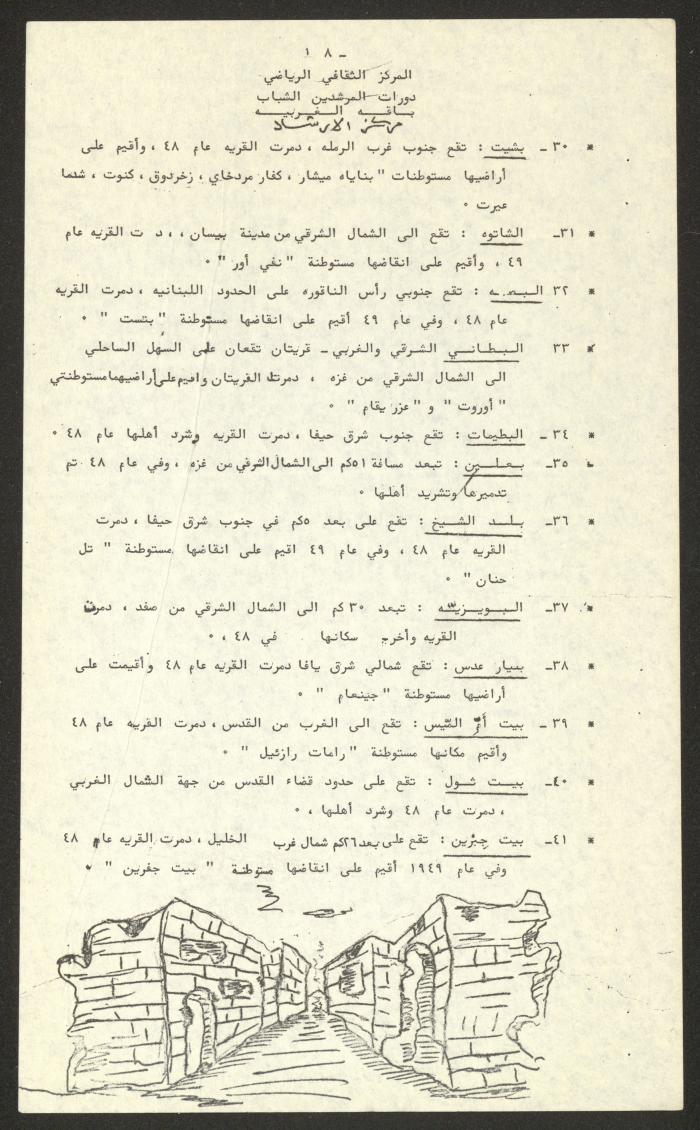 ـ ٨ ١
المركز الثقافي الرياضي
دورات المرشدين الشباب
باقه الغربيه
مركز الارشاد
* ٣٠ـ بشيت : تقع جنوب غرب الرمله ، دمرت القريه عام ٤٨ ، وأقيم على
أراضيها مستوطنات " بناياه ميشار ، كفار مردخاي ، زخردوق ، كنوت ، شدما
عيرت ٠
* ٣١ـ الشاتوه : تقع الى الشمال الشرقي من مدينة بيسان ، ، د ت القريه عام
٤٩ ، وأقيم على انقاضها مستوطنة " نفي أور " ٠
* ٣٢ : تقع جنوبي رأس الناقوره على الحدود اللبنانيه ، دمرت القريه
عام ٤٨ ، وفي عام ٤٩ أقيم على انقاضها مستوطنة " بتست " ٠
* ٣٣ البطاني الشرقي والغربي ـ قريتان تقعان على السهل الساحلي
الى الشمال الشرقي من غزه ، دمرت القريتان واقيم على أراضيهما مستوطنتي
" أوروت " و " عزريقام " ٠
* ٣٤ ـ البطيمات : تقع جنوب شرق حيفا ، دمرت القريه وشرد أهلها عام ٤٨ ٠
٣٥ـ بعلين : تبعد مسافة ٥١كم الى الشمال الشرقي من غزه ، وفي عام ٤٨ تم
تدميرها وتشريد أهلها ٠
* ٣٦ـ بلد الشيخ : تقع على بعد ٥كم في جنوب شرق حيفا ، دمرت
القريه عام ٤٨ ، وفي عام ٤٩ اقيم على انقاضها مستوطنة " تل
حنان " ٠
* ٣٧ـ البويزيه : تبعد ٣٠كم الى الشمال الشرقي من صفد ، دمرت
القريه وأخرج سكانها في ٤٨ ، ٠
* ٣٨ـ بيار عدس : تقع شمالي شرق يافا دمرت القريه عام ٤٨ وأقيمت على
أراضيها مستوطنة " جينعام " ٠
* ٣٩ ـ بيت أم الميس : تقع الى الغرب من القدس ، دمرت القريه عام ٤٨
وأقيم مكانها مستوطنة " رامات رازئيل " ٠
* ٤٠ـ بيت شول : تقع على حدود قضاء القدس من جهة الشمال الغربي
، دمرت عام ٤٨ وشرد أهلها ، ٠
* ٤١ـ بيت جبرين : تقع على بعد ٢٦كم شمال غرب الخليل ، دمرت القريه عام ٤٨
وفي عام ١٩٤٩ أقيم على انقاضها مستوطنة " بيت جفرين " ٠